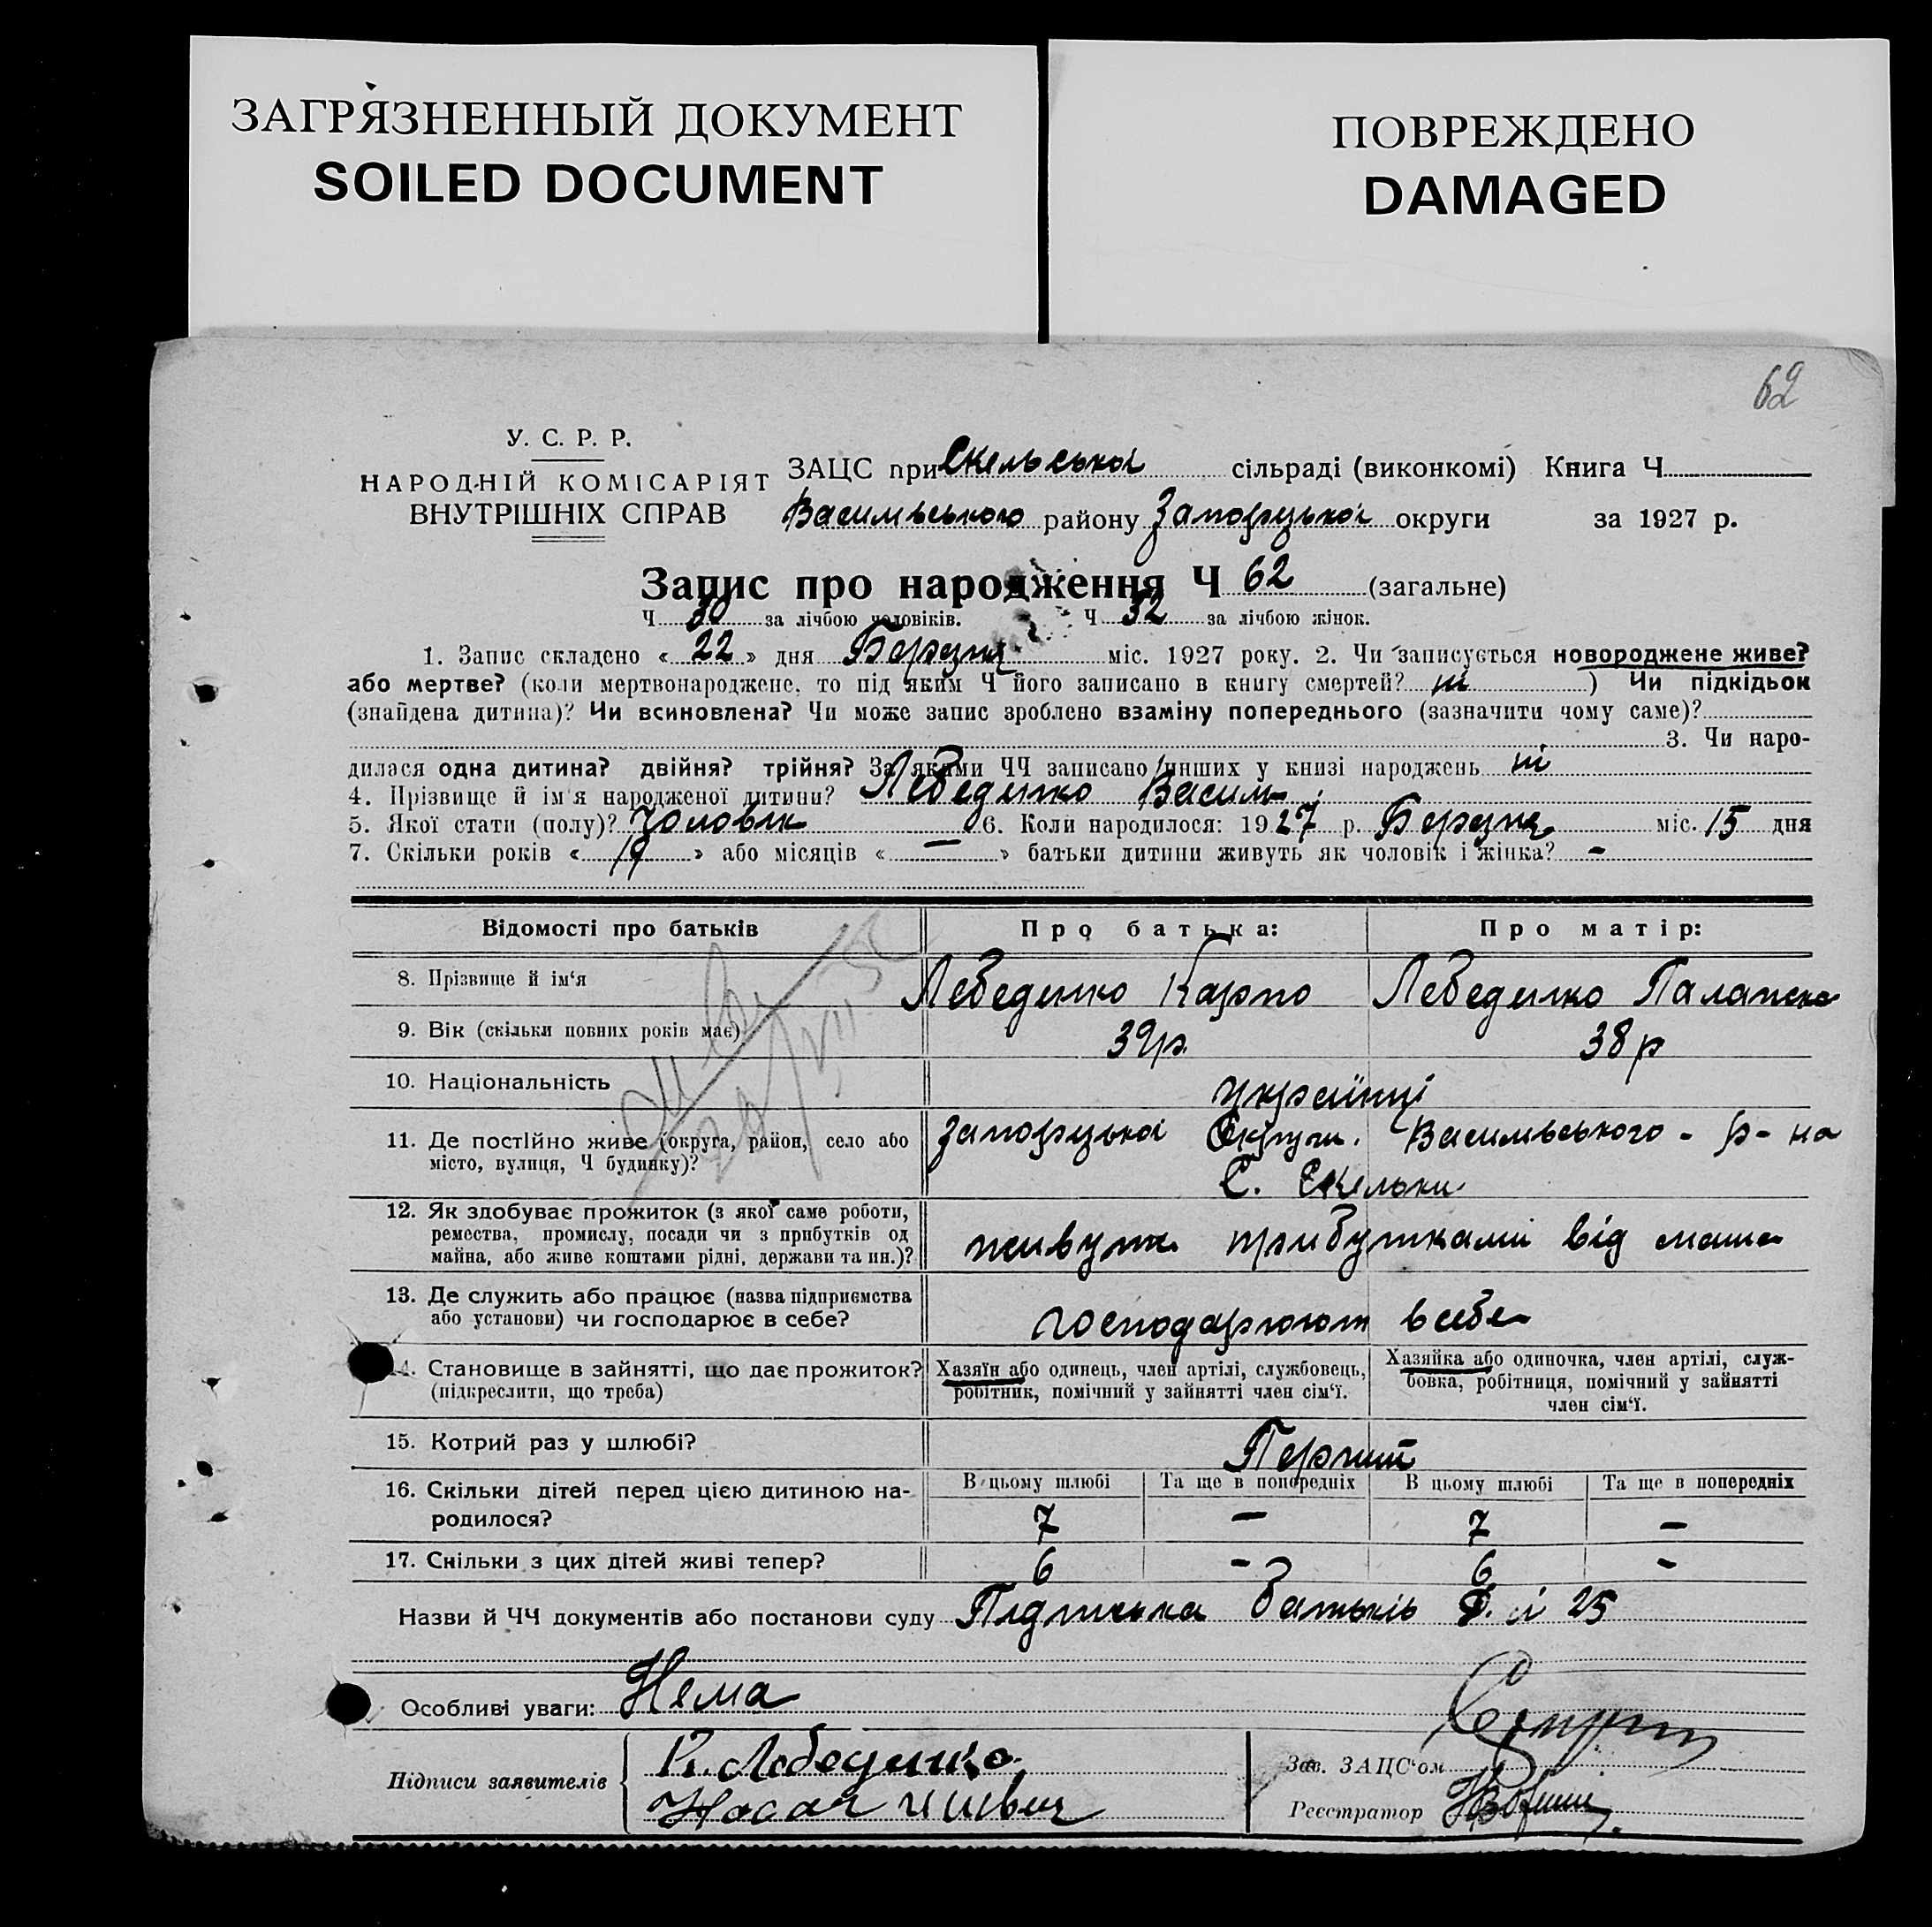 ЗАГРЯЗНЕННЫЙ ДОКУМЕНТ
SOILED DOCUMENT
ПОВРЕЖДЕНО
DAMAGED
62
У. С. Р. Р.
НАРОДНІЙ КОМІСАРІЯТ
ВНУТРІШНІХ СПРАВ
ЗАЦС при Скельської сільраді (виконкомі) Книга Ч
Василівського району Запорізької округи за 1927 р.
Запис про народження Ч 62 (загальне)
Ч 30 за лічбою чоловіків. Ч 32 за лічбою жінок.
1. Запис складено « 22 » дня Березня міс. 1927 року. 2. Чи записується новороджене живе?
або мертве? (коли мертвонароджене, то під яким Ч його записано в книгу смертей? ні ) Чи підкідьок
(знайдена дитина)? Чи всиновлена? Чи може запис зроблено взаміну попереднього (зазначити чому саме)?
3. Чи наро-
дилася одна дитина? двійня? трійня? За якими ЧЧ записано инших у книзі народжень ні
4. Прізвище й ім'я народженої дитини? Лебеденко Василь
5. Якої стати (полу)? Чоловік 6. Коли народилося: 1927 р. Березня міс. 15 дня
7. Скільки років « 19 » або місяців « — » батьки дитини живуть як чоловік і жінка? -
Відомості про батьків Про батька: Про матір:
8. Прізвище й ім'я Лебеденко Карпо Лебеденко Палажка
9. Вік (скільки повних років має) 39р. 38 р
10. Національність Українці
11. Де постійно живе (округа, район, село або
місто, вулиця, Ч будинку)?
Запорізької Округи. Василівського - р-на
С. Скельки
12. Як здобуває прожиток (з якої саме роботи,
ремества, промислу, посади чи з прибутків од
майна, або живе коштами рідні, держави та ин.)?
живуть прибутками від майна
13. Де служить або працює (назва підприємства
або установи) чи господарює в себе?
господарюють в себе
14. Становище в зайнятті, що дає прожиток?
(підкреслити, що треба)
Хазяїн або одинець, член артілі, службовець,
робітник, помічний у зайнятті член сім'ї.
Хазяйка або одиночка, член артілі, служ-
бовка, робітниця, помічний у зайнятті
член сім'ї.
15. Котрий раз у шлюбі? Перший
16. Скільки дітей перед цією дитиною на-
родилося?
В цьому шлюбі Та ще в попередніх В цьому шлюбі Та ще в попередніх
7 — 7 —
17. Скільки з цих дітей живі тепер? 6 - 6 -
Назви й ЧЧ документів або постанови суду Підписка батьків 25
Особливі уваги: Нема
Підписи заявителів
К. Лебеденко
Зав. ЗАЦС'ом
Реєстратор